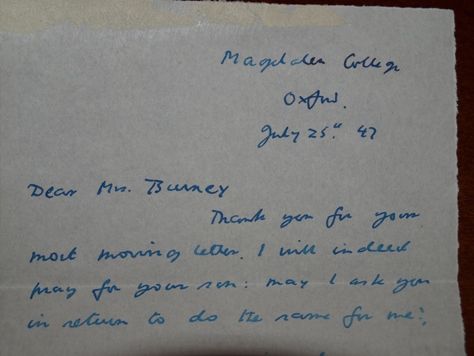 Magdalen College
Oxford.
July 25th 47
Dear Mrs. Burney
Thank you for your
most moving letter. I will indeed
pray for your son: may I ask you
in return to do the same for me?